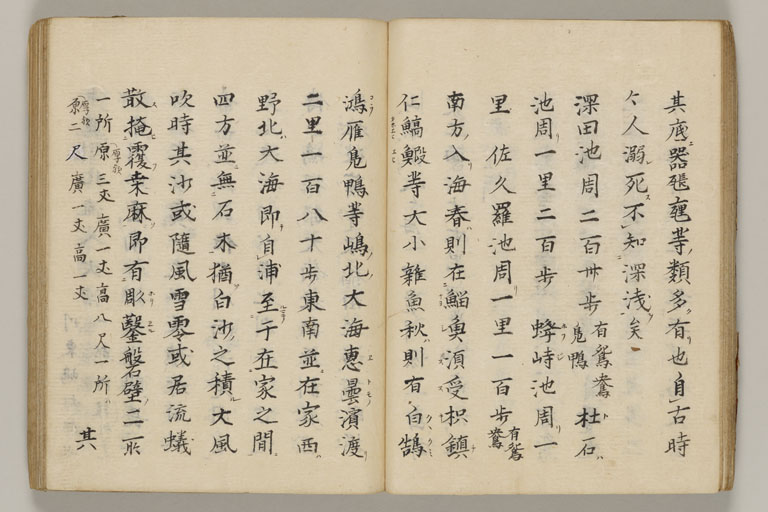 其底器瓺甕等類多有也自古時
々人溺死不知深浅矣
深田池周二百卌歩有鴛鴦鳧鴨杜石
池周一里二百歩 蜂峙池周一
里 佐久羅池周一里一百歩有鴛鴦
南方入海春則在鯔魚須受枳鎮
仁鰝鰕等大小雑魚秋則有白鵠
鴻雁鳧鴨等嶋北大海恵曇濱渡
二里一百八十歩東南並在家西
野北大海即自浦至于在家之間
四方並無石木猶白沙之積大風
吹時其沙或随風雪零或居流蟻
散掩覆桒麻即有彫鑿磐壁二所
一所原三丈廣一丈高八尺一所
原二尺廣一丈高一丈 其